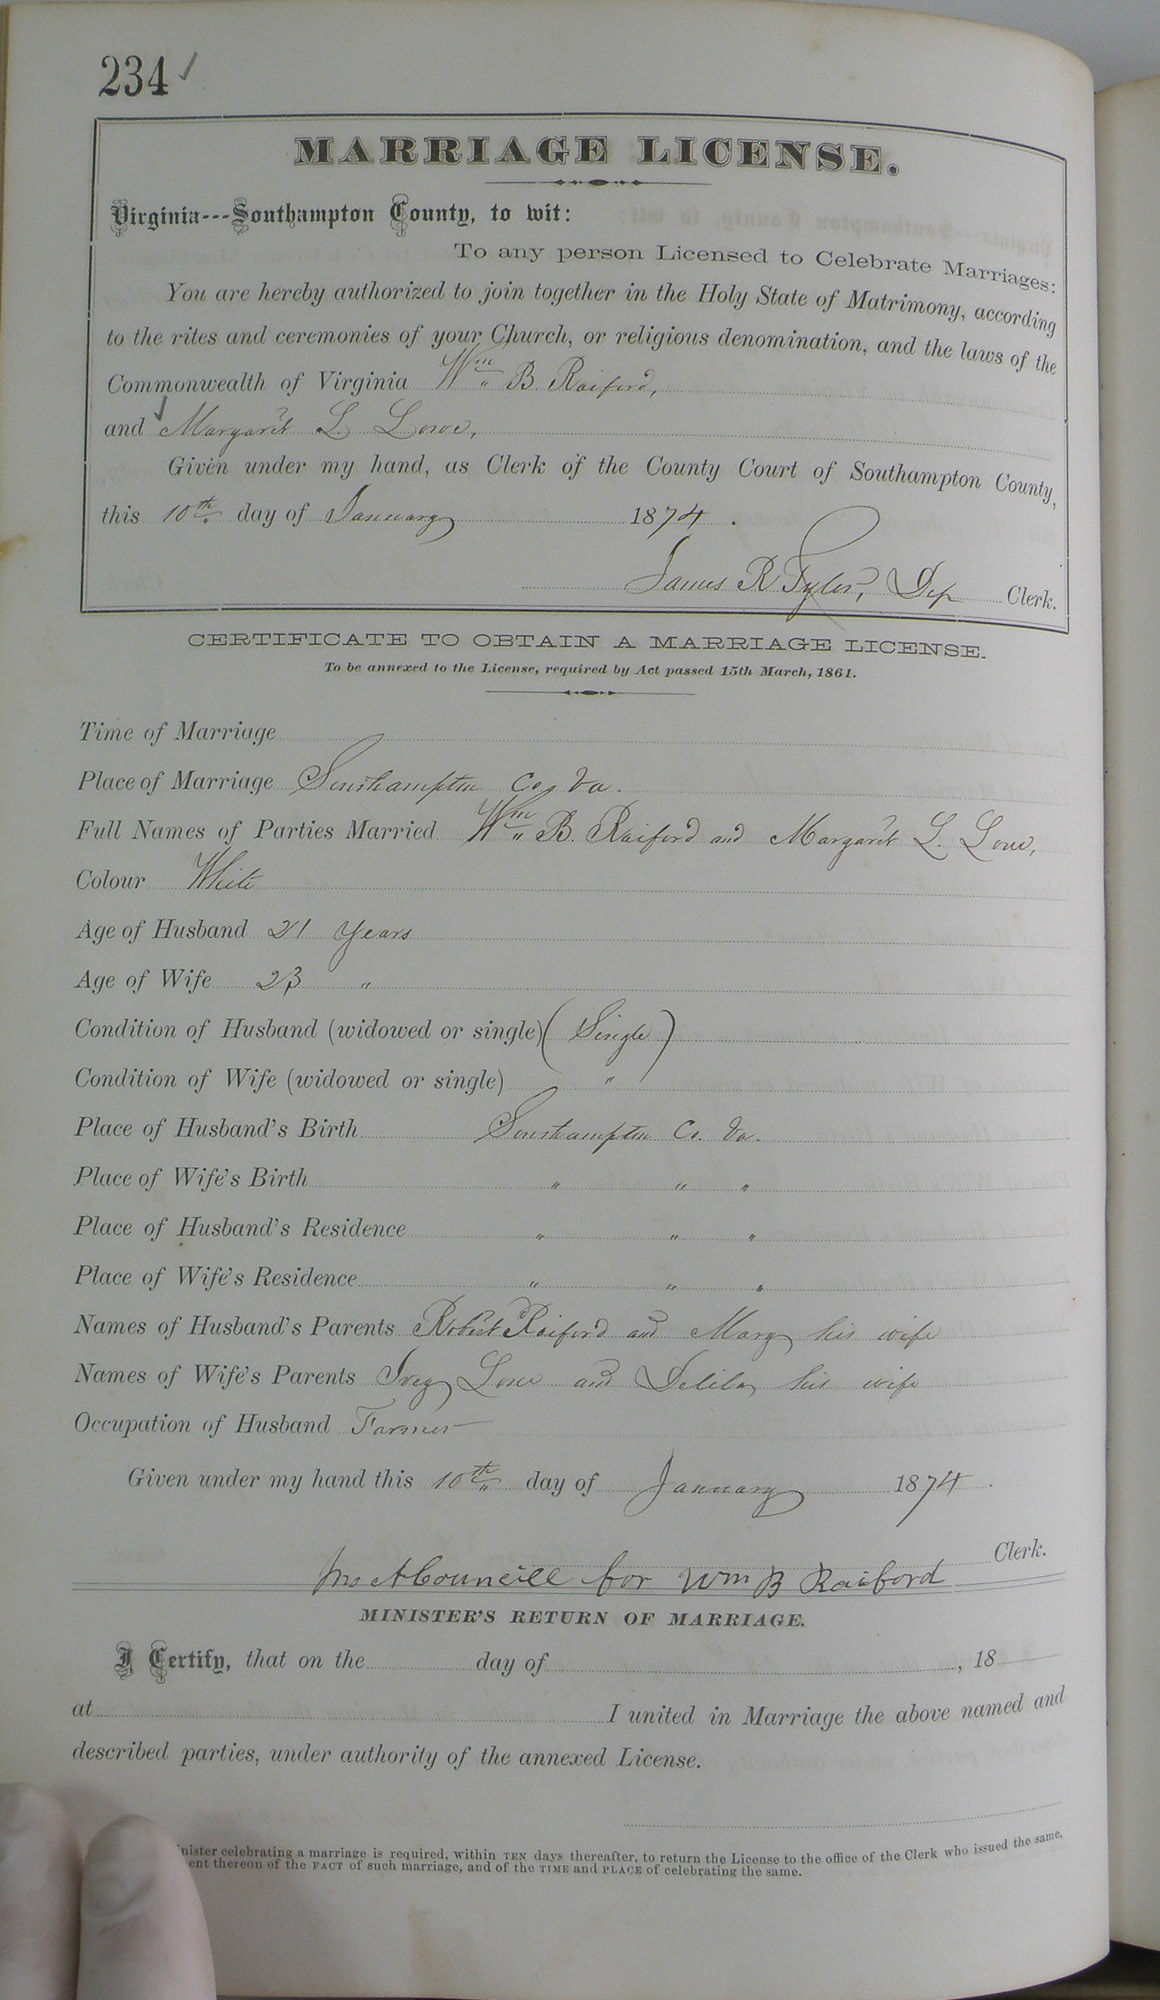 234 ✓
MARRIAGE LICENSE.
Virginia---Southampton County, to wit:
To any person Licensed to Celebrate Marriages:
You are hereby authorized to join together in the Holy State of Matrimony, according
to the rites and ceremonies of your Church, or religious denomination, and the laws of the
Commonwealth of Virginia Wm B. Raiford,
and Margaret L. Lowe,
Given under my hand, as Clerk of the County Court of Southampton County,
this 10th day of January 1874.
James R Tyler, Dep Clerk.
CERTIFICATE TO OBTAIN A MARRIAGE LICENSE.
To be annexed to the License, required by Act passed 15th March, 1861.
Time of Marriage
Place of Marriage Southampton Co, Va.
Full Names of Parties Married Wm B. Raiford and Margaret L. Lowe,
Colour White
Age of Husband 21 Years
Age of Wife 23 "
Condition of Husband (widowed or single) (Single)
Condition of Wife (widowed or single) "
Place of Husband's Birth Southampton Co. Va.
Place of Wife's Birth " " "
Place of Husband's Residence " " "
Place of Wife's Residence " " "
Names of Husband's Parents Robert Raiford and Mary his wife
Names of Wife's Parents Ivey Lowe and Delila his wife
Occupation of Husband Farmer
Given under my hand this 10th day of January 1874.
Clerk.
Jno A Councill for Wm B Raiford
MINISTER'S RETURN OF MARRIAGE.
I Certify, that on the day of , 18
at I united in Marriage the above named and
described parties, under authority of the annexed License.
nister celebrating a marriage is required, within TEN days thereafter, to return the License to the office of the Clerk who issued the same,
ent thereon of the FACT of such marriage, and of the TIME and PLACE of celebrating the same.